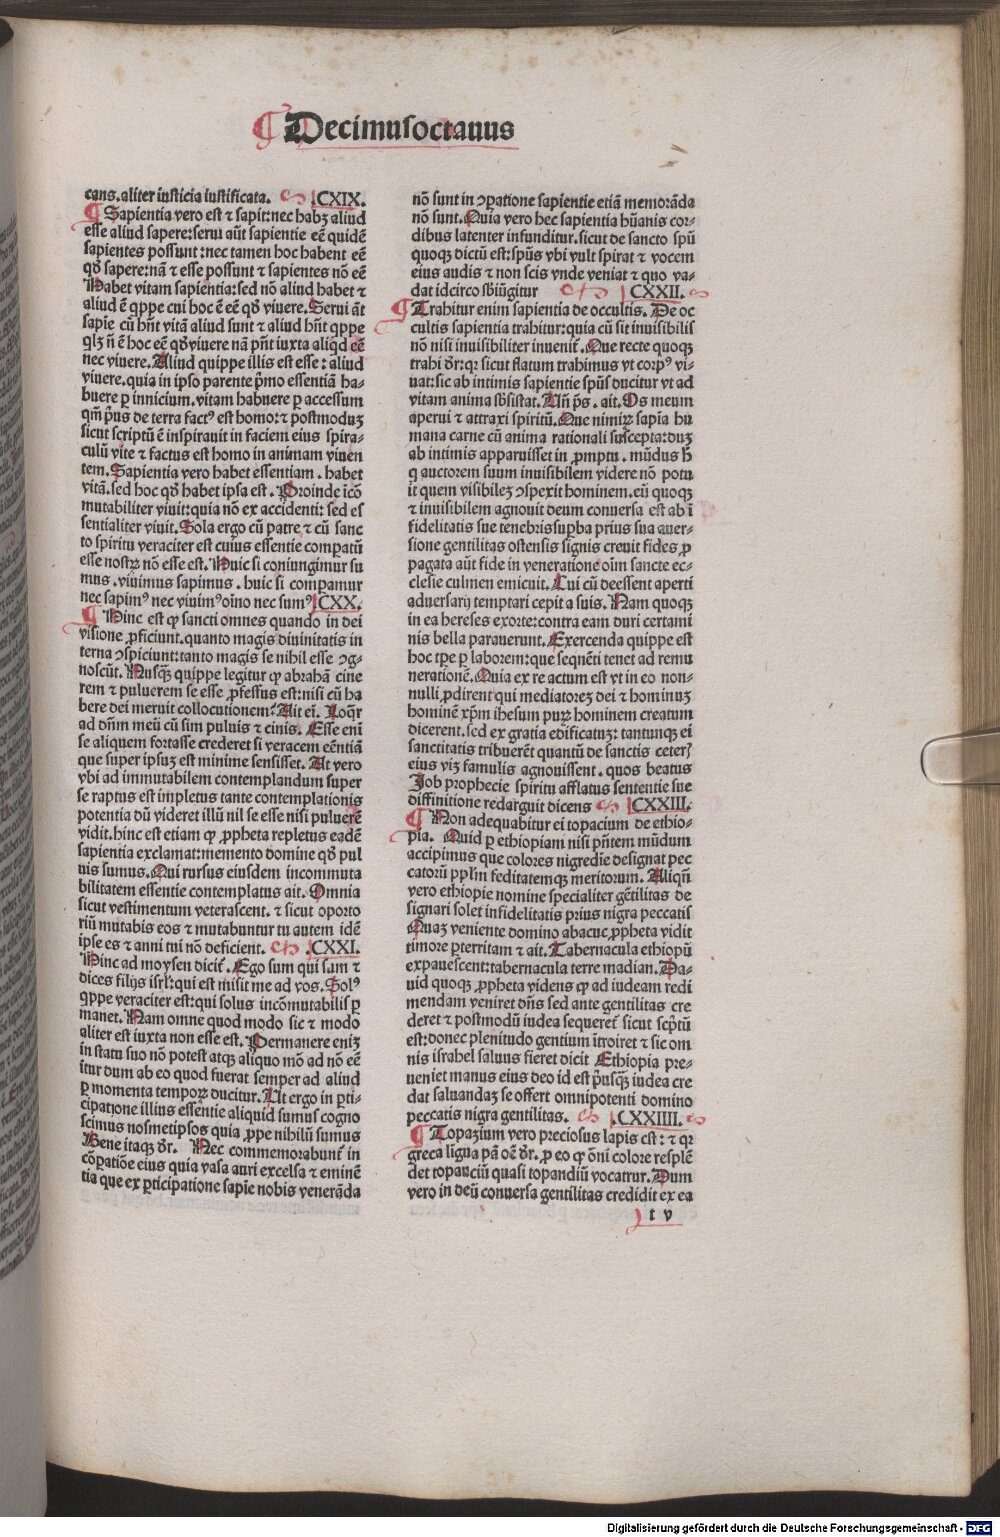 ¶ Decimusoctauus
cans. aliter iusticia iustificata. CXIX.
¶ Sapientia vero est ⁊ sapit: nec habꝫ aliud
esse aliud sapere: serui aūt sapientie eē quidē
sapientes possunt: nec tamen hoc habent eē
qď sapere: nā ⁊ esse possunt ⁊ sapientes nō eē
Habet vitam sapientia: sed nō aliud habet ⁊
aliud ē qppe cui hoc ē eē qď viuere. Serui āt
sapie cū hn̄t vitā aliud sunt ⁊ aliud hn̄t qppe
qlꝫ n̄ ē hoc eē qď viuere nā pn̄t iuxta aliqd eē
nec viuere. Aliud quippe illis est esse: aliud
viuere. quia in ipso parente p̄mo essentiā ha-
buere ꝑ innicium. vitam habuere ꝑ accessum
qm̄ p̄us de terra factꝰ est homo: ⁊ postmoduꝫ
sicut scriptū ē inspirauit in faciem eius spira-
culū vite ⁊ factus est homo in animam viuen
tem. Sapientia vero habet essentiam. habet
vitā. sed hoc qď habet ipsa est. Proinde icō
mutabiliter viuit: quia nō ex accidenti: sed es
sentialiter viuit. Sola ergo cū patre ⁊ cū sanc
to spiritu veraciter est cuius essentie compatū
esse nostrꝫ nō esse est. Huic si coniungimur su
mus. viuimus sapimus. huic si compamur
nec sapimꝰ nec viuimꝰ oīno nec sumꝰ CXX.
¶ Hinc est ꝙ sancti omnes quando in dei
visione ꝓficiunt. quanto magis diuinitatis in
terna ↄspiciunt: tanto magis se nihil esse ↄg-
noscūt. Nusqꝫ quippe legitur ꝙ abrahā cine
rem ⁊ puluerem se esse ꝓfessus est: nisi cū ha
bere dei meruit collocutionem: Ait ei. Loqr
ad dn̄m meū cū sim puluis ⁊ cinis. Esse eni
se aliquem fortasse crederet si veracem eēntiā
que super ipsuꝫ est minime sensisset. At vero
vbi ad immutabilem contemplandum super
se raptus est impletus tante contemplationis
potentia dū videret illū nil se esse nisi puluerē
vidit. hinc est etiam ꝙ ꝓpheta repletus eadē
sapientia exclamat: memento domine qď pul
uis sumus. Qui rursus eiusdem incommuta
bilitatem essentie contemplatus ait. Omnia
sicut vestimentum veterascent. ⁊ sicut oporto
riū mutabis eos ⁊ mutabuntur tu autem idē
ipse es ⁊ anni tui nō deficient. CXXI.
Hinc ad moysen dicit̄. Ego sum qui sum ⁊
dices filijs isrl: qui est misit me ad vos. Solꝰ
qppe veraciter est: qui solus incōmutabilis ꝑ
manet. Nam omne quod modo sic ⁊ modo
aliter est iuxta non esse est. Permanere enīꝫ
in statu suo nō potest atqꝫ aliquo mō ad nō eē
itur dum ab eo quod fuerat semper ad aliud
ꝑ momenta temporꝫ ducitur. Ut ergo in ꝑti-
cipatione illius essentie aliquid sumus cogno
scimus nosmetipsos quia ꝓpe nihilū sumus
Bene itaqꝫ dr̄. Nec commemorabunt̄ in
cōꝑatiōe eius quia vasa auri excelsa ⁊ eminē
tia que ex ꝑticipatione sapie nobis venerāda
nō sunt in ↄꝑatione sapientie etiā memorāda
nō sunt. Quia vero hec sapientia hūanis cor-
dibus latenter infunditur. sicut de sancto spū
quoqꝫ dictū est: spūs vbi vult spirat ⁊ vocem
eius audis ⁊ non scis vnde veniat ⁊ quo va-
dat idcirco sbiūgitur CXXII.
¶ Trahitur enim sapientia de occultis. De oc
cultis sapientia trahitur: quia cū sit inuisibilis
nō nisi inuisibiliter inuenit̄. Que recte quoqꝫ
trahi dr̄: qꝛ sicut flatum trahimus vt corpꝰ vi-
uat: sic ab intimis sapientie spūs ducitur vt ad
vitam anima sbsistat. Un̄ ps. ait. Os meum
aperui ⁊ attraxi spiritū. Que nimirꝫ sapia hu
mana carne cū anima rationali suscepta: duꝫ
ab intimis apparuisset in ꝓmptu. mūdus h̄
q auctorem suum inuisibilem videre nō potu
it quem visibileꝫ ↄspexit hominem. eū quoqꝫ
⁊ inuisibilem agnouit deum conuersa est ab ī
fidelitatis sue tenebris suꝑba prius sua auer-
sione gentilitas ostensis signis creuit fides ꝓ
pagata aūt fide in veneratione oīm sancte ec-
clesie culmen emicuit. Cui cū deessent aperti
aduersarij temptari cepit a suis. Nam quoqꝫ
in ea hereses exorte: contra eam duri certami
nis bella parauerunt. Exercenda quippe est
hoc tꝑe ꝑ laborem: que seqnēti tenet ad remu
nerationē. Quia ex re actum est vt in eo non-
nulli ꝓdirent qui mediatoreꝫ dei ⁊ hominuꝫ
hominē xp̄m ihesum purꝫ hominem creatum
dicerent. sed ex gratia deificatuꝫ: tantumqꝫ ei
sanctitatis tribuerēt quantū de sanctis ceterꝭ
eius viꝫ famulis agnouissent. quos beatus
Job prophecie spiritu afflatus sententie sue
diffinitione redarguit dicens CXXIII.
¶ Non adequabitur ei topacium de ethio-
pia. Quid ꝑ ethiopiam nisi pn̄tem mūdum
accipimus que colores nigredie designat pec
catorū pplm feditatemqꝫ meritorum. Aliqn̄
vero ethiopie nomine specialiter gētilitas de
signari solet infidelitatis prius nigra peccatis
Quaꝫ veniente domino abacuc ꝓpheta vidit
timore ꝑterritam ⁊ ait. Tabernacula ethiopū
expauescent: tabernacula terre madian. Da-
uid quoqꝫ ꝓpheta videns ꝙ ad iudeam redi
mendam veniret dn̄s sed ante gentilitas cre
deret ⁊ postmodū iudea sequeret̄ sicut scp̄tū
est: donec plenitudo gentium ītroiret ⁊ sic om
nis israhel saluus fieret dicit Ethiopia pre-
ueniet manus eius deo id est p̄usqꝫ iudea cre
dat saluandaꝫ se offert omnipotenti domino
peccatis nigra gentilitas. CXXIIII.
¶ Topazium vero preciosus lapis est: ⁊ qꝛ
greca ligua pā oē dr̄. ꝓ eo ꝙ ōni colore resplē
det topauciū quasi topandiū vocatur. Dum
vero in deū conuersa gentilitas credidit ex ea
t v
Digitalisierung gefördert durch die Deutsche Forschungsgemeinschaft - DFG